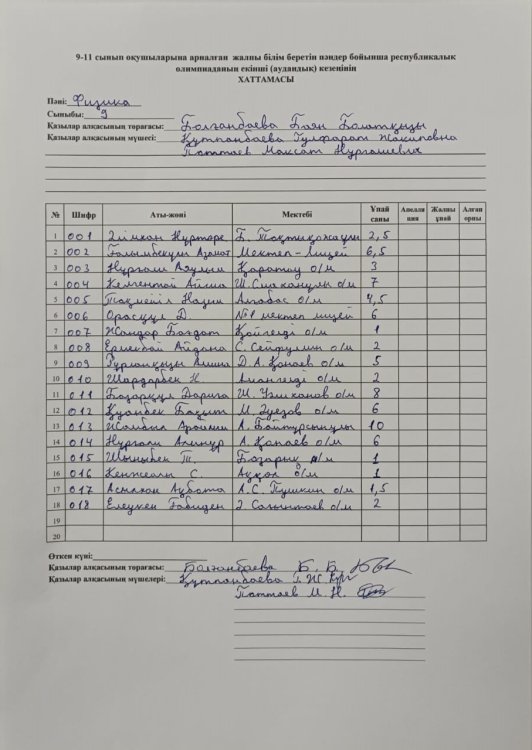 9-11 сынып оқушыларына арналған жалпы білім беретін пәндер бойынша республикалық
олимпиаданың екінші (аудандық) кезеңінің
ХАТТАМАСЫ
Пәні: Физика
Сыныбы: 9
Қазылар алқасының төрағасы: Болғанбаева Баян Болатқызы
Қазылар алқасының мүшесі: Құтпанбаева Гулфарат Жакиповна
Паттаев Максат Нургашевич
№ Шифр Аты-жөні Мектебі Ұпай саны Апелляция Жалпы ұпай Алған орны
1 001 Әлихан Нұртөре Б. 2,5
2 002 Ғалымбекұлы Азамат Мектеп-Лицей 6,5
3 003 Нұрғали Аяулым Қаратау о/м 3
4 004 Айша Ш. о/м 7
5 005 Назым Ақтабас о/м 4,5
6 006 Орасқұл Д. №1 мектеп лицей 6
7 007 Жандар Бағдат о/м 1
8 008 Ерменбай Айдана С. Сейфулин о/м 2
9 009 Тұрғанқызы Амина Д.А. Қонаев о/м 5
10 010 Шардарбек Н Амангелді о/м 2
11 011 Базарқұл Дариға Ш. Уәлиханов о/м 8
12 012 Қуанбек Бақыт М. Әуезов о/м 6
13 013 А. Байтұрсынұлы 10
14 014 Нұрғали Алинұр А. Қонаев о/м 6
15 015 Шыныбек Т. Базарық о/м 1
16 016 Кенжеали С. о/м 1
17 017 Асылхан Ақбота А.С. Пушкин о/м 1,5
18 018 Елеукен Ғабиден Ә Сағынтаев о/м 2
19
20
Өткен күні:
Қазылар алқасының төрағасы: Болғанбаева Б. Б.
Қазылар алқасының мүшелері: Құтпанбаева Г. Ж
Паттаев М. Н.